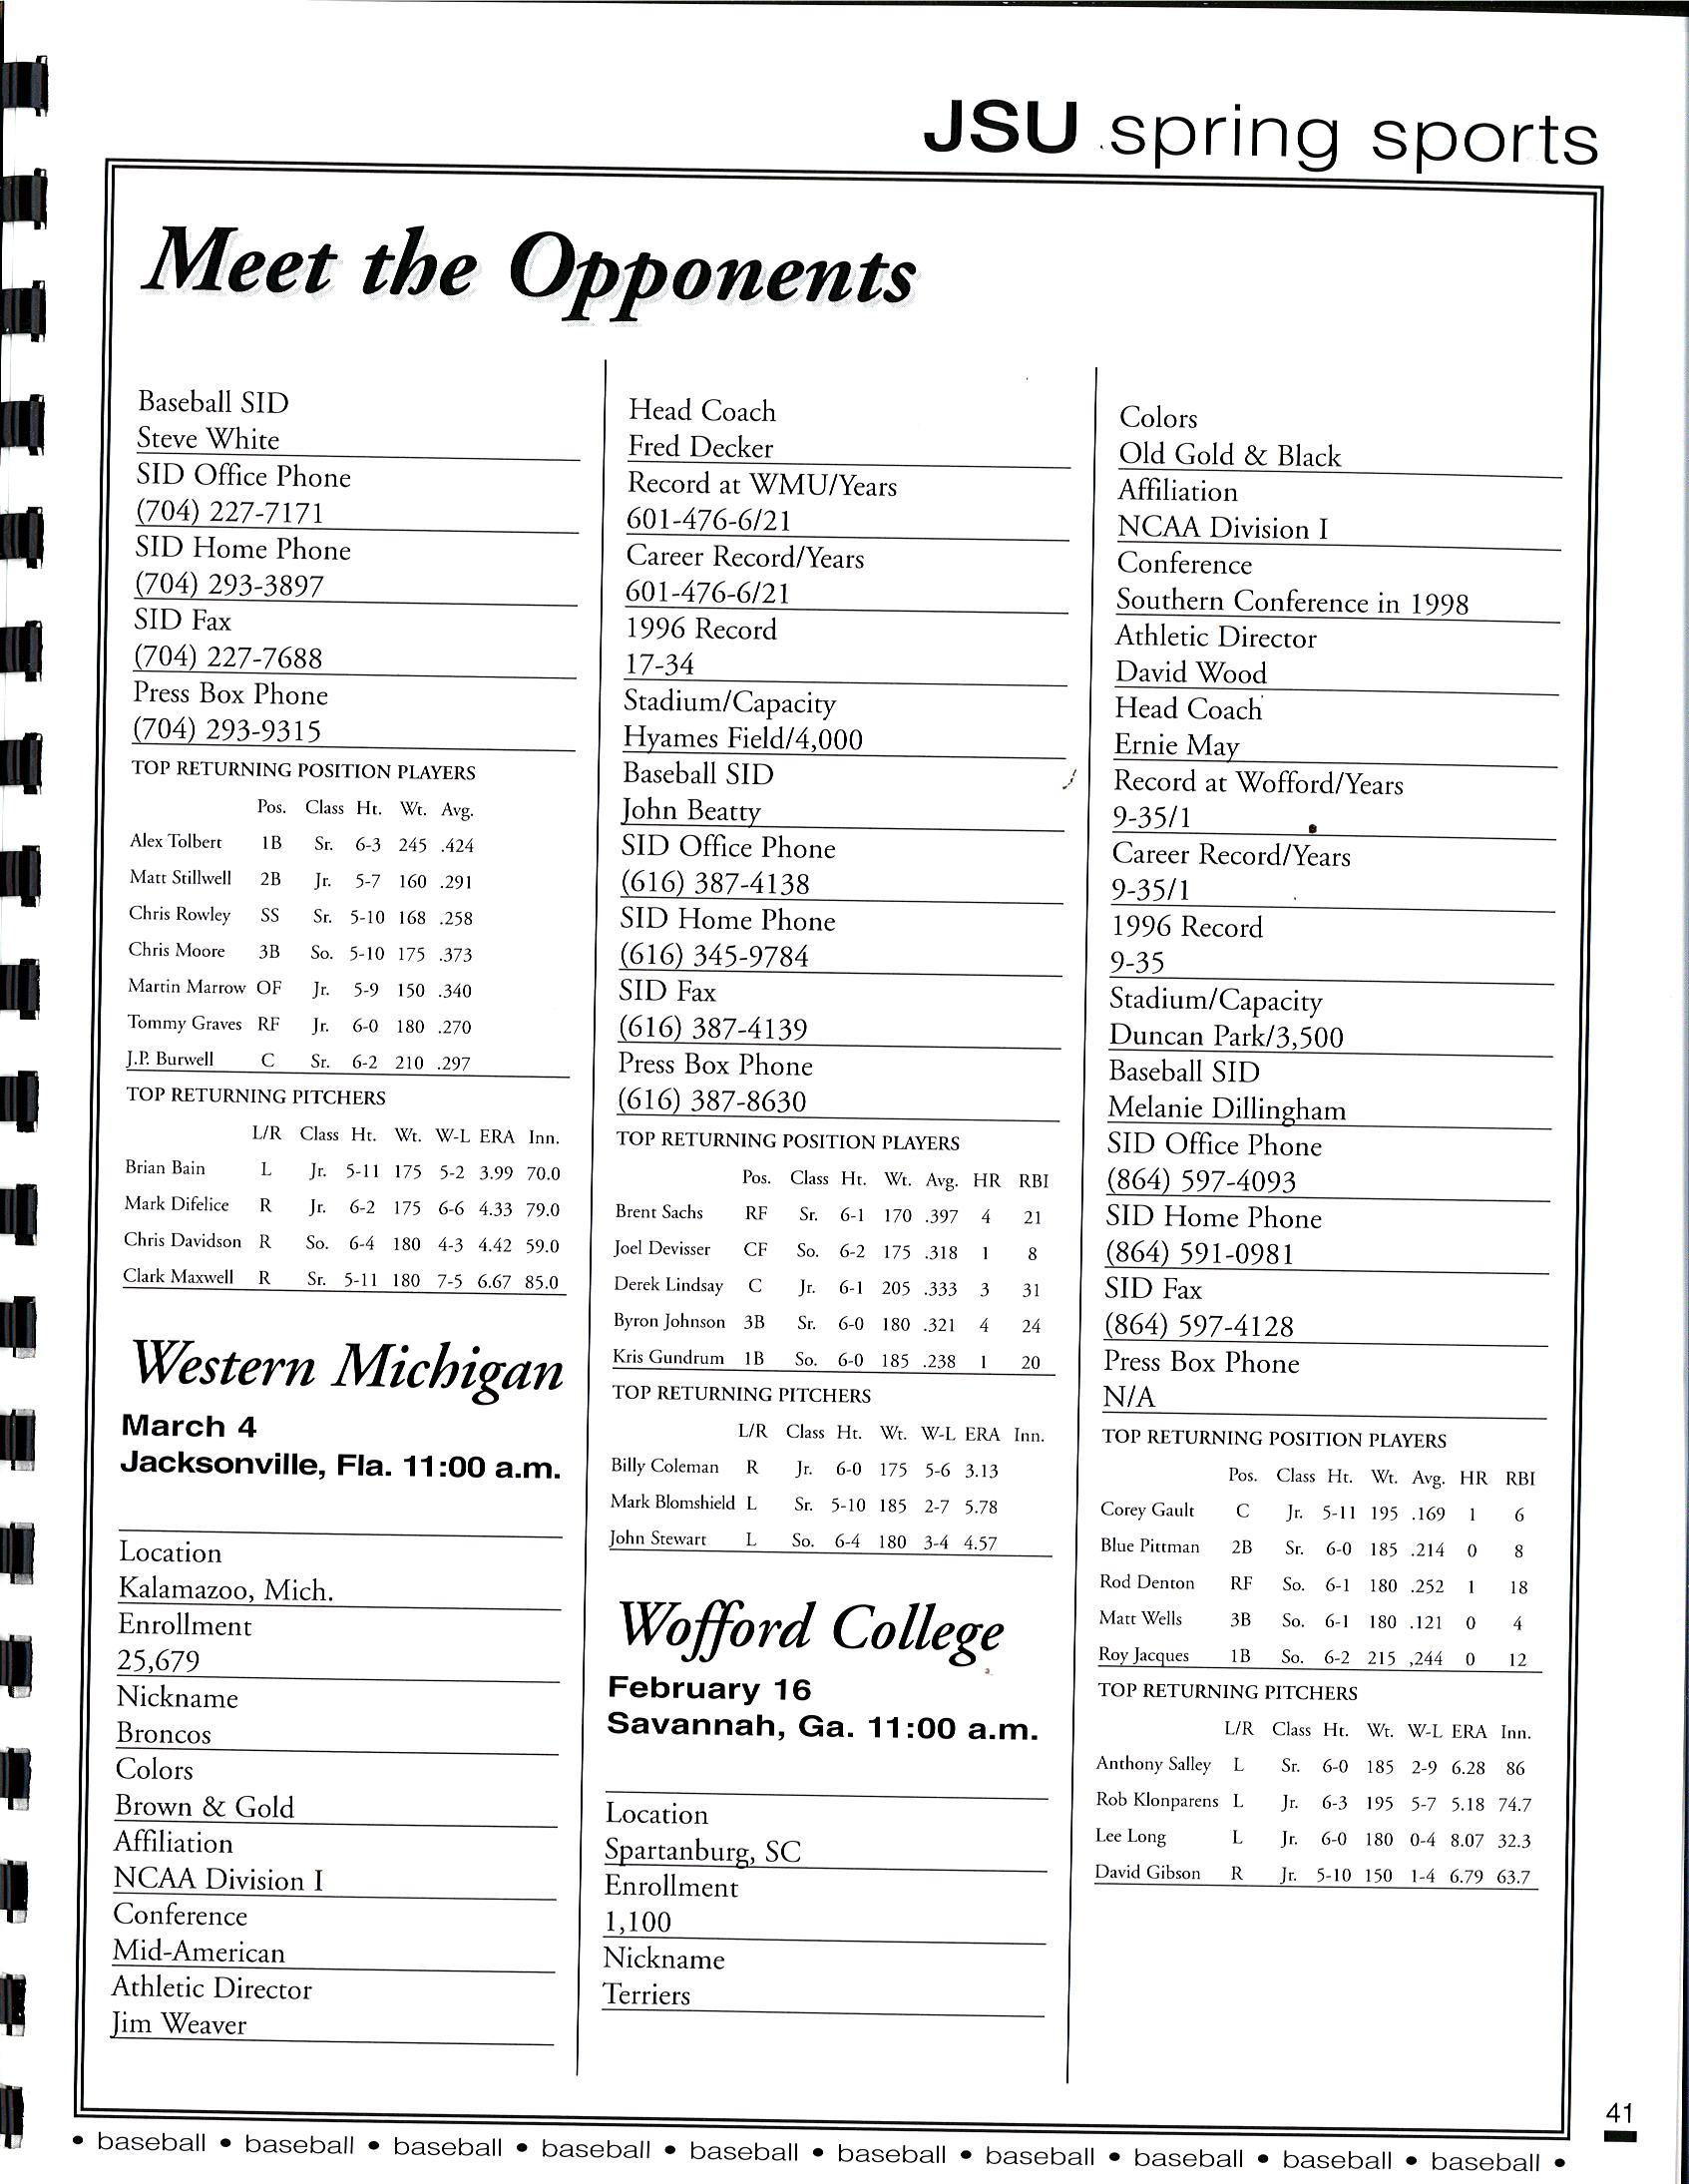 JSU spring sports
Meet the Opponents
Baseball SID
Steve White
SID Office Phone
(704) 227-7171
SID Home Phone
(704) 293-3897
SID Fax
(704) 227-7688
Press Box Phone
(704) 293-9315
TOP RETURNING POSITION PLAYERS
Pos. Class Ht. Wt. Avg.
Alex Tolbert 1B Sr. 6-3 245 .424
Matt Stillwell 2B Jr. 5-7 160 .291
Chris Rowley SS Sr. 5-10 168 .258
Chris Moore 3B So. 5-10 175 .373
Martin Marrow OF Jr. 5-9 150 .340
Tommy Graves RF Jr. 6-0 180 .270
J.P. Burwell C Sr. 6-2 210 .297
TOP RETURNING PITCHERS
L/R Class Ht. Wt. W-L ERA Inn.
Brian Bain L Jr. 5-11 175 5-2 3.99 70.0
Mark Difelice R Jr. 6-2 175 6-6 4.33 79.0
Chris Davidson R So. 6-4 180 4-3 4.42 59.0
Clark Maxwell R Sr. 5-11 180 7-5 6.67 85.0
Western Michigan
March 4
Jacksonville, Fla. 11:00 a.m.
Location
Kalamazoo, Mich.
Enrollment
25,679
Nickname
Broncos
Colors
Brown & Gold
Affiliation
NCAA Division I
Conference
Mid-American
Athletic Director
Jim Weaver
Head Coach
Fred Decker
Record at WMU/Years
601-476-6/21
Career Record/Years
601-476-6/21
1996 Record
17-34
Stadium/Capacity
Hyames Field/4,000
Baseball SID
John Beatty
SID Office Phone
(616) 387-4138
SID Home Phone
(616) 345-9784
SID Fax
(616) 387-4139
Press Box Phone
(616) 387-8630
TOP RETURNING POSITION PLAYERS
Pos. Class Ht. Wt. Avg. HR RBI
Brent Sachs RF Sr. 6-1 170 .397 4 21
Joel Devisser CF So. 6-2 175 .318 1 8
Derek Lindsay C Jr. 6-1 205 .333 3 31
Byron Johnson 3B Sr. 6-0 180 .321 4 24
Kris Gundrum 1B So. 6-0 185 .238 1 20
TOP RETURNING PITCHERS
L/R Class Ht. Wt. W-L ERA Inn.
Billy Coleman R Jr. 6-0 175 5-6 3.13
Mark Blomshield L Sr. 5-10 185 2-7 5.78
John Stewart L So. 6-4 180 3-4 4.57
Wofford College
February 16
Savannah, Ga. 11:00 a.m.
Location
Spartanburg, SC
Enrollment
1,100
Nickname
Terriers
Colors
Old Gold & Black
Affiliation
NCAA Division I
Conference
Southern Conference in 1998
Athletic Director
David Wood
Head Coach
Ernie May
Record at Wofford/Years
9-35/1
Career Record/Years
9-35/1
1996 Record
9-35
Stadium/Capacity
Duncan Park/3,500
Baseball SID
Melanie Dillingham
SID Office Phone
(864) 597-4093
SID Home Phone
(864) 591-0981
SID Fax
(864) 597-4128
Press Box Phone
N/A
TOP RETURNING POSITION PLAYERS
Pos. Class Ht. Wt. Avg. HR RBI
Corey Gault C Jr. 5-11 195 .169 1 6
Blue Pittman 2B Sr. 6-0 185 .214 0 8
Rod Denton RF So. 6-1 180 .252 1 18
Matt Wells 3B So. 6-1 180 .121 0 4
Roy Jacques 1B So. 6-2 215 ,244 0 12
TOP RETURNING PITCHERS
L/R Class Ht. Wt. W-L ERA Inn.
Anthony Salley L Sr. 6-0 185 2-9 6.28 86
Rob Klonparens L Jr. 6-3 195 5-7 5.18 74.7
Lee Long L Jr. 6-0 180 0-4 8.07 32.3
David Gibson R Jr. 5-10 150 1-4 6.79 63.7
41
• baseball • baseball • baseball • baseball • baseball • baseball • baseball • baseball • baseball • baseball •